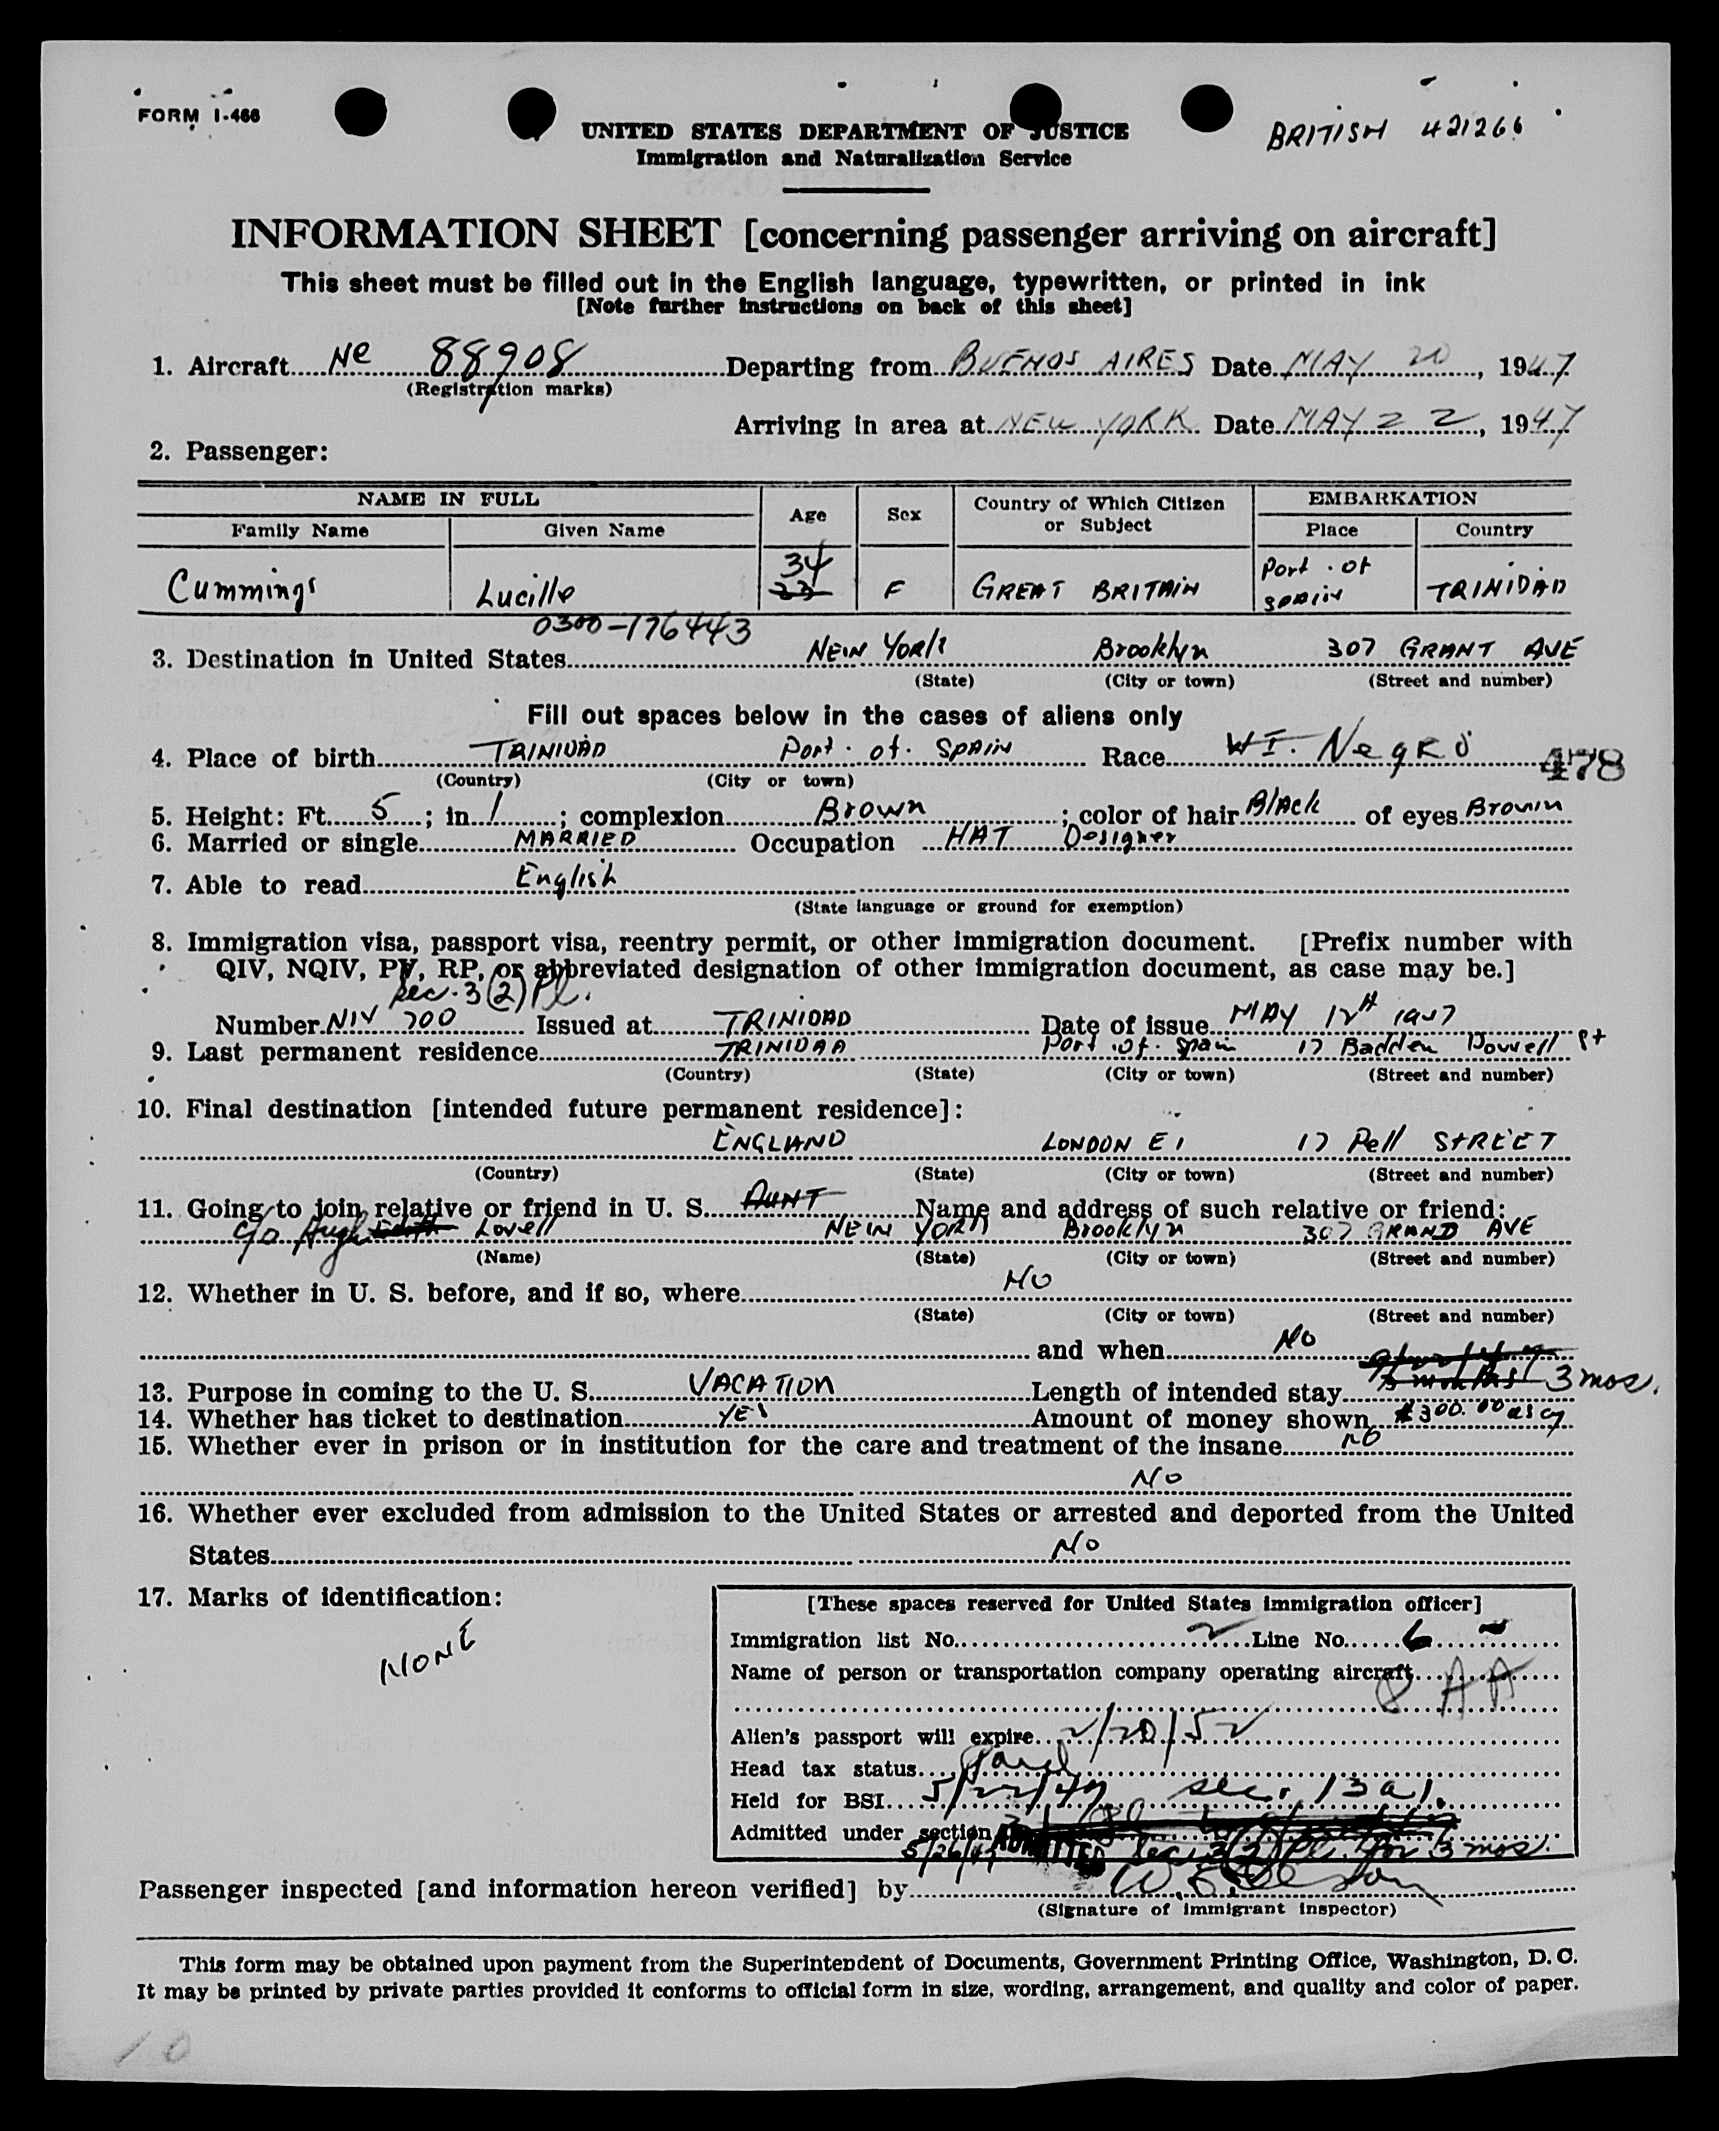 FORM I-466
BRITISH 421266
UNITED STATES DEPARTMENT OF JUSTICE
Immigration and Naturalization Service
INFORMATION SHEET [concerning passenger arriving on aircraft]
This sheet must be filled out in the English language, typewritten, or printed in ink
[Note further instructions on back of this sheet]
1. Aircraft Nc 88908 Departing from BUENOS AIRES Date MAY 20, 1947
(Registration marks)
Arriving in area at NEW YORK Date MAY 22, 1947
2. Passenger:
NAME IN FULL Age Sex Country of Which Citizen or Subject EMBARKATION
Family Name Given Name Place Country
34
Cummings Lucille 33 F GREAT BRITAIN Port of SPAIN TRINIDAD
0300-176443
3. Destination in United States NEW YORK Brooklyn 307 GRANT AVE
(State) (City or town) (Street and number)
Fill out spaces below in the cases of aliens only
4. Place of birth TRINIDAD Port. of. SPAIN Race W I. Negro 478
(Country) (City or town)
5. Height: Ft. 5; in. 1; complexion Brown; color of hair Black of eyes Brown
6. Married or single MARRIED Occupation HAT Designer
7. Able to read English
(State language or ground for exemption)
8. Immigration visa, passport visa, reentry permit, or other immigration document. [Prefix number with
QIV, NQIV, PV, RP, or abbreviated designation of other immigration document, as case may be.]
Sec. 3(2) Pl.
Number NIV 700 Issued at TRINIDAD Date of issue MAY 12th 1947
9. Last permanent residence TRINIDAD Port. of. Spain 17 Badden Powell St
(Country) (State) (City or town) (Street and number)
10. Final destination [intended future permanent residence]:
ENGLAND LONDON E1 17 Pell STREET
(Country) (State) (City or town) (Street and number)
11. Going to join relative or friend in U. S. AUNT Name and address of such relative or friend:
c/o Hugh Lovell NEW YORK Brooklyn 307 GRAND AVE
(Name) (State) (City or town) (Street and number)
12. Whether in U. S. before, and if so, where NO
(State) (City or town) (Street and number)
and when NO
13. Purpose in coming to the U. S. VACATION Length of intended stay 3 months 3 mos.
14. Whether has ticket to destination YES Amount of money shown $300.00
15. Whether ever in prison or in institution for the care and treatment of the insane NO
NO
16. Whether ever excluded from admission to the United States or arrested and deported from the United
States NO
17. Marks of identification:
NONE
[These spaces reserved for United States immigration officer]
Immigration list No. 2 Line No. 6
Name of person or transportation company operating aircraft PAA
Alien's passport will expire 2/20/52
Head tax status Pared
Held for BSI 5/22/47 sec. 13a1.
Admitted under section
5/26/47 ADMITTED Sec. 3(2) Pl. for 3 mos.
Passenger inspected [and information hereon verified] by
(Signature of immigrant inspector)
This form may be obtained upon payment from the Superintendent of Documents, Government Printing Office, Washington, D. C.
It may be printed by private parties provided it conforms to official form in size, wording, arrangement, and quality and color of paper.
10